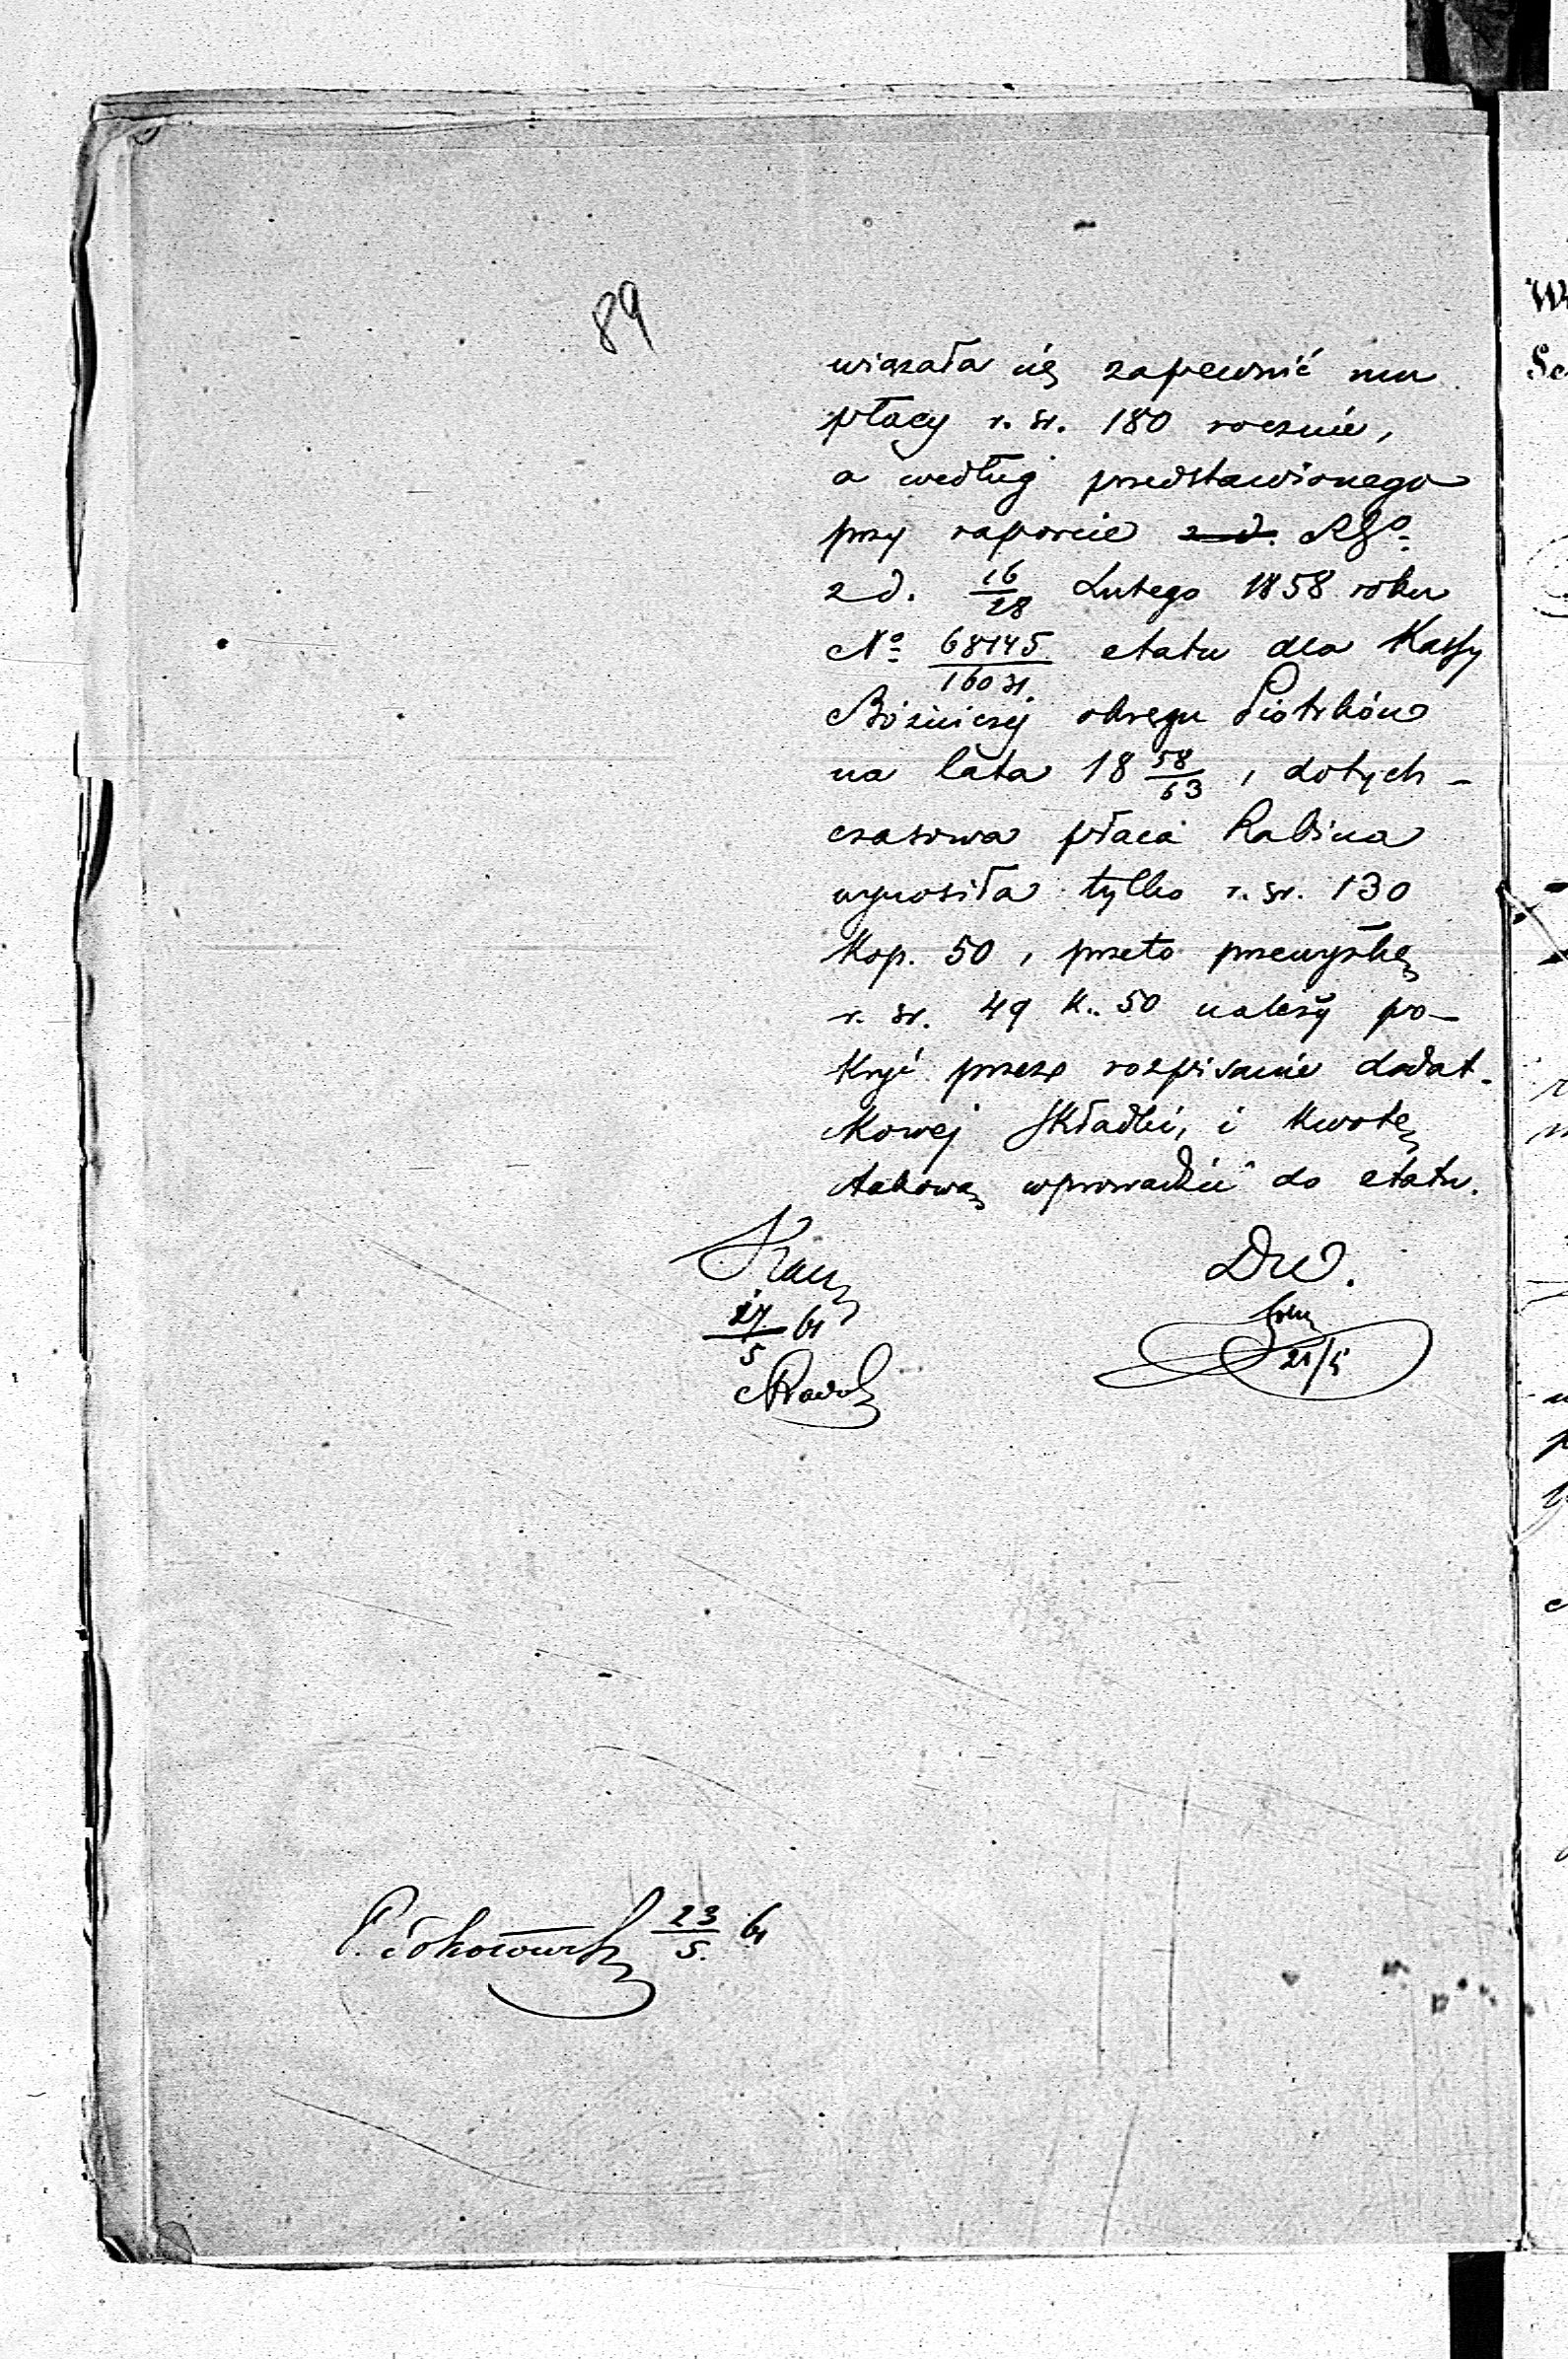 89
wiązała się zapewnić mu
płacy r. sr. 180 rocznie,
a według przedstawionego
przy raporcie z d. RGo
z d. 16/28 Lutego 1858 roku
No 68145/160 31. etatu dla Kassy
Bóżniczej okręgu Piotrków
na lata 18 58/63, dotych-
czasowa płaca Rabina
wynosiła tylko r. sr. 130
Kop. 50, przeto przewyżkę
r. sr. 49 k. 50 należy po-
kryć przez rozpisanie dodat-
kowej składki, i kwotę
takową wprowadzić do etatu.
27/5 61
21/5
23/5. 61